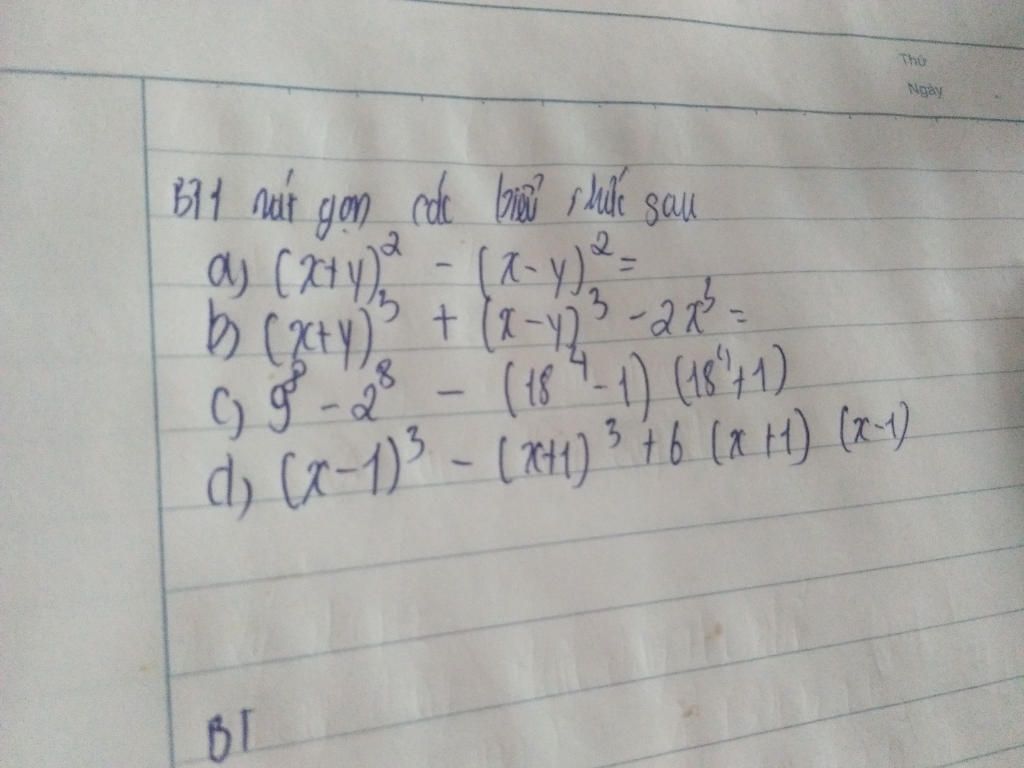 Thứ
Ngày
BT1 rút gọn các biểu thức sau
a) (x+y)² - (x-y)² =
b) (x+y)³ + (x-y)³ - 2x³ =
c) 9⁸ - 2⁸ - (18⁴-1) (18⁴+1)
d) (x-1)³ - (x+1)³ + 6 (x+1) (x-1)
BT